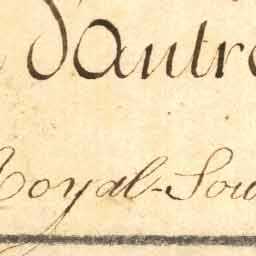 d'autre
Royal-Sou